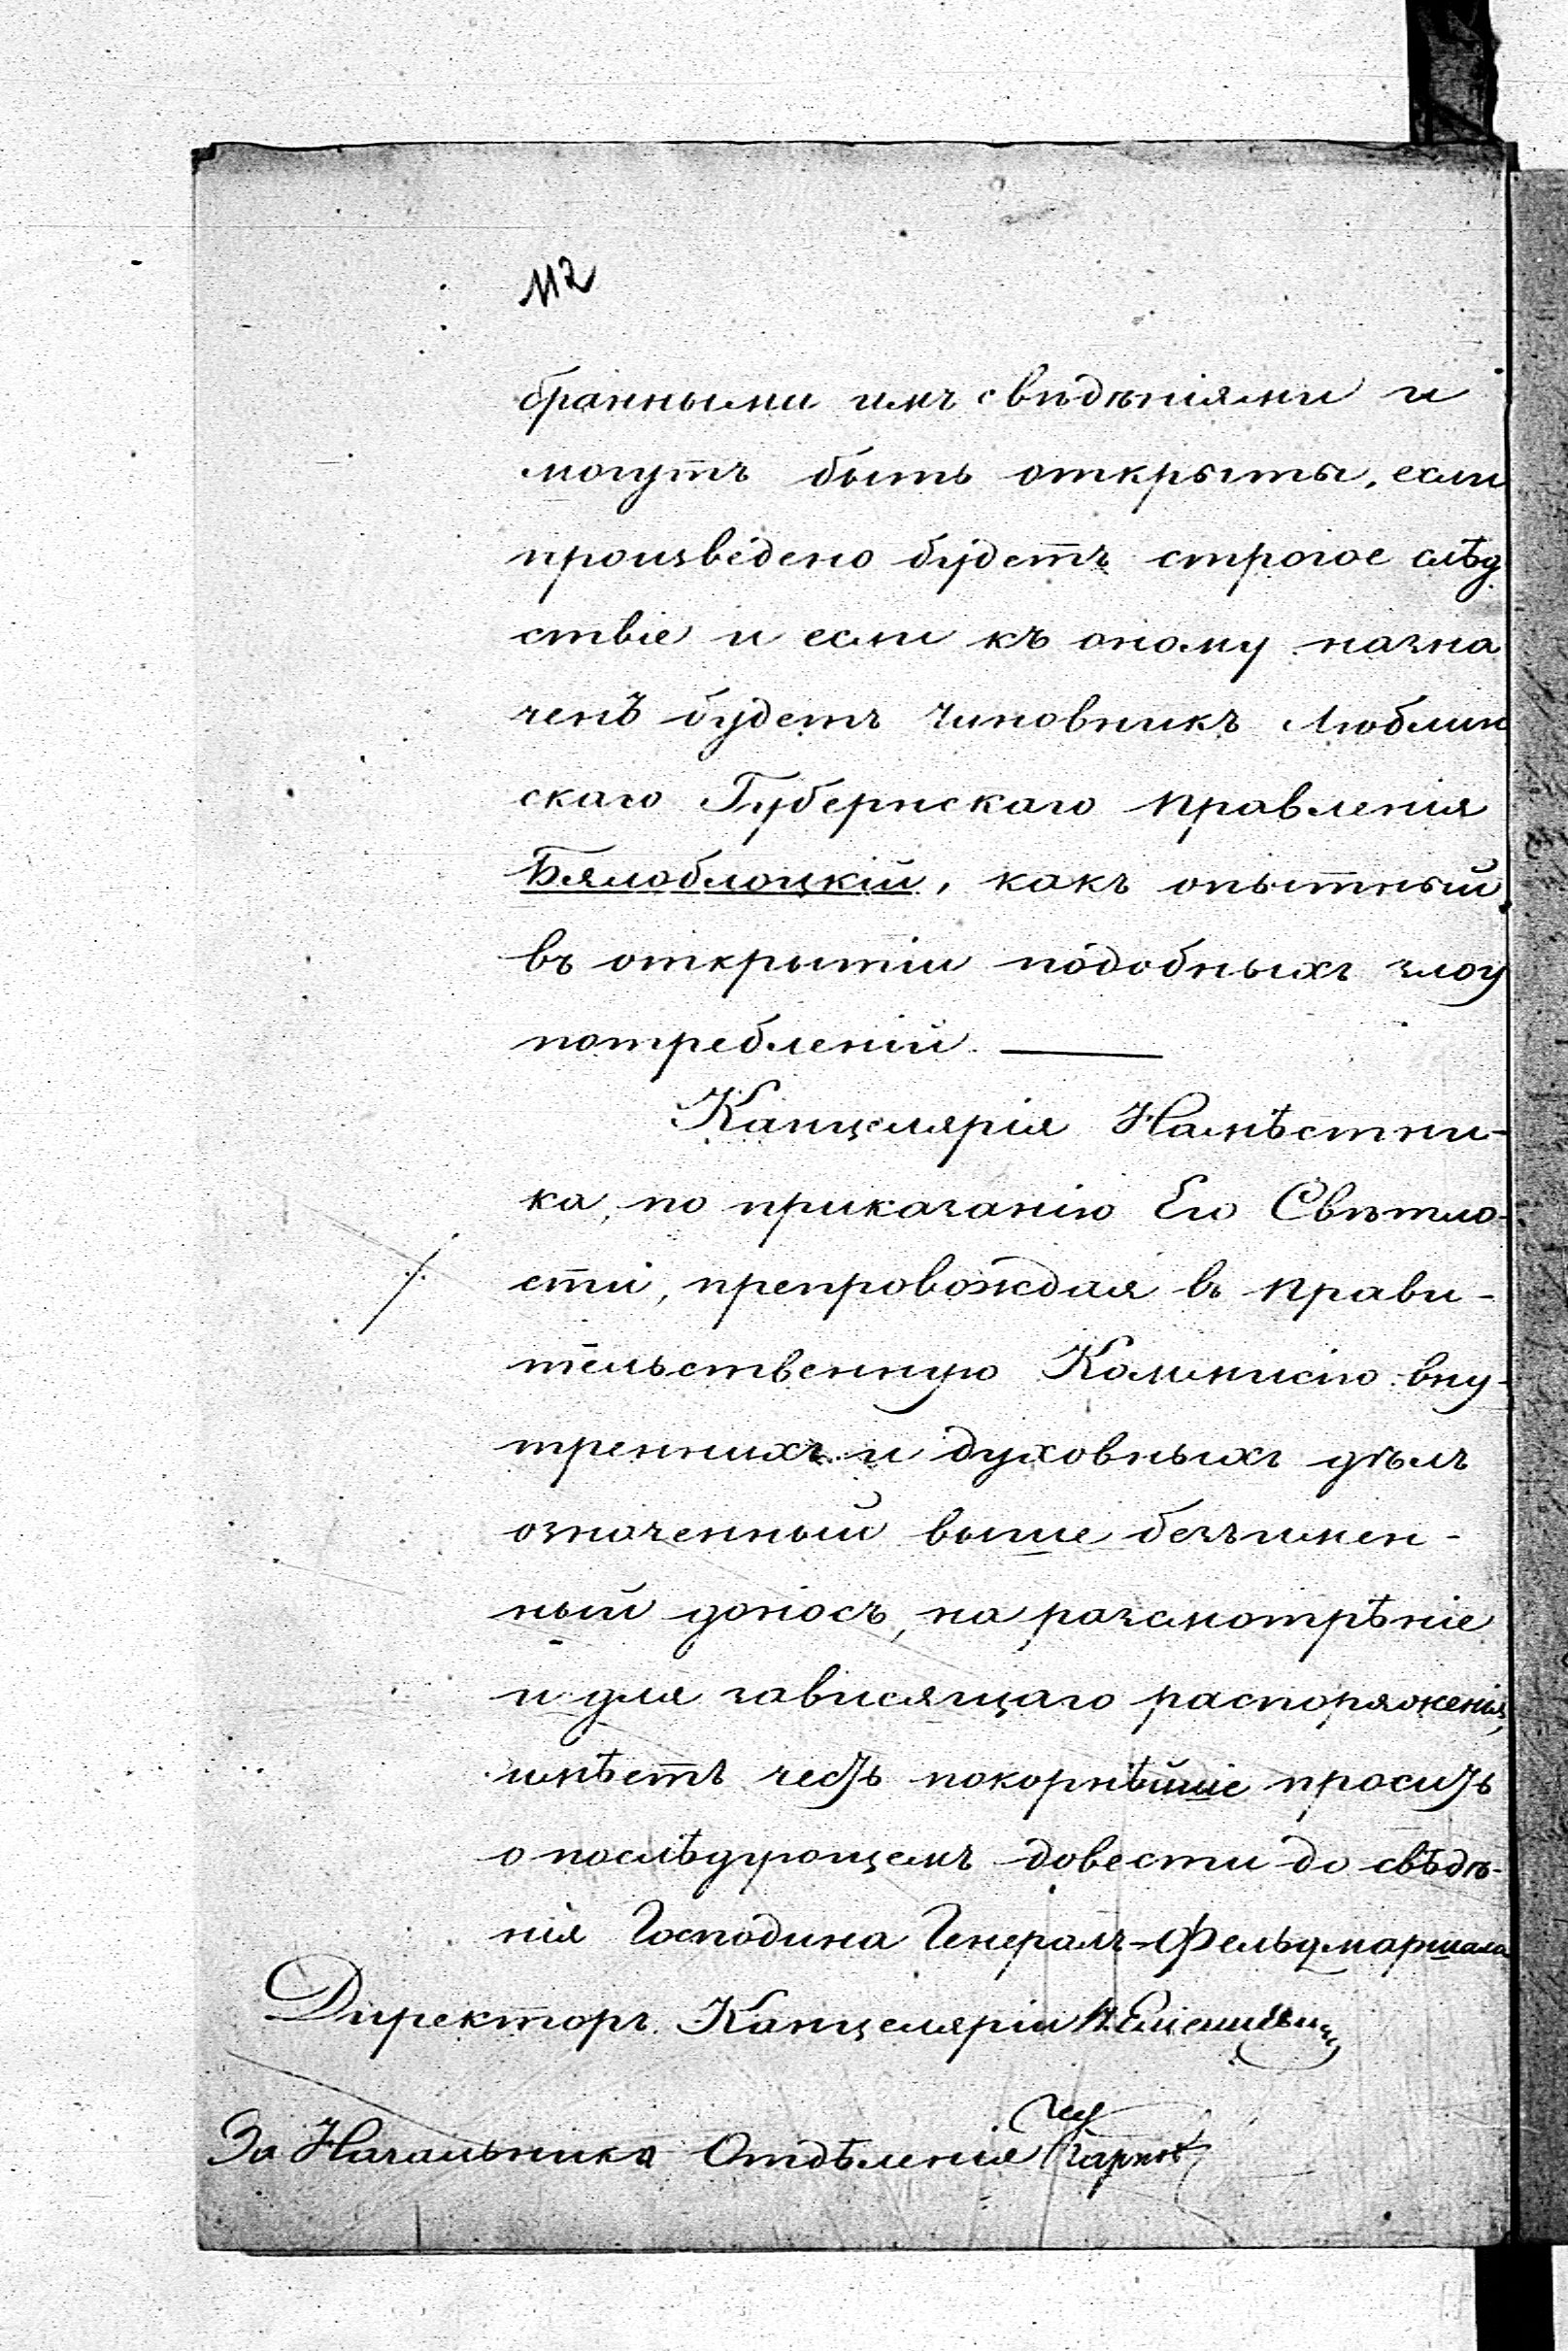 112
бранными имъ свѣдѣніями и
могутъ быть открыты, если
произведено будетъ строгое слѣд
ствіе и если къ оному назна
ченъ будетъ чиновникъ Люблин
скаго Губернскаго Правленія
Бялоблоцкій, какъ опытный
въ открытіи подобныхъ злоу
потребленій. —
Канцелярія Намѣстни-
ка, по приказанію Его Свѣтло-
сти, препровождая въ Прави-
тельственную Коммисію вну-
треннихъ и духовныхъ дѣлъ
означенный выше безъимен-
ный доносъ, на разсмотрѣніе
и для зависящаго распоряженія,
имѣетъ честь покорнѣйше просить
о послѣдующемъ довести до свѣдѣ-
нія Господина Генералъ-Фельдмаршала
Директоръ Канцеляріи
За Начальника Отдѣленія